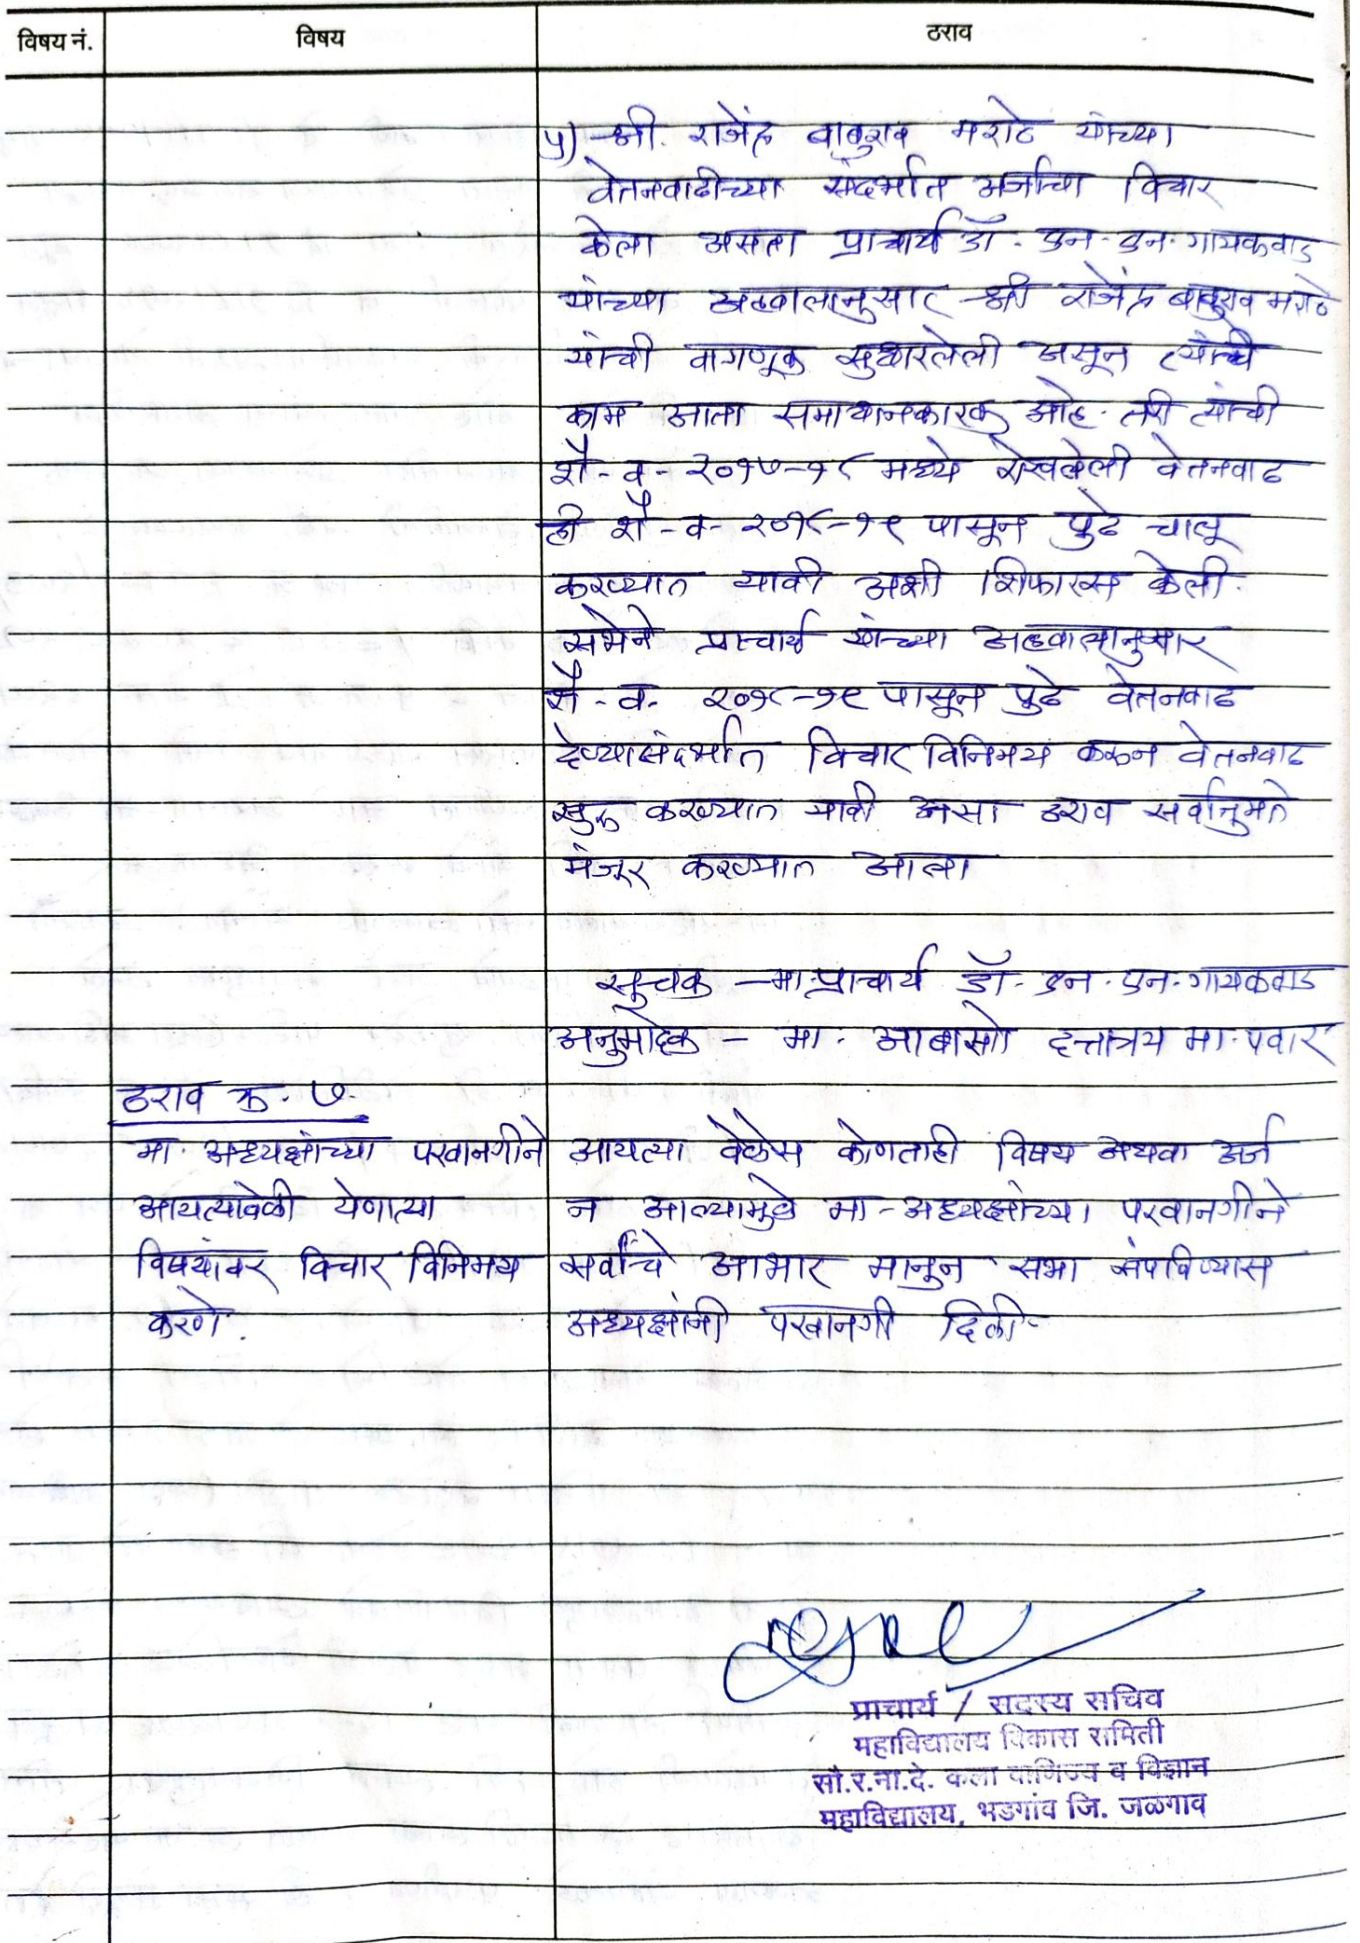 विषय नं. विषय ठराव
५) श्री. राजेंद्र बाबुराव मराठे यांच्या
वेतनवाढीच्या संदर्भात अर्जाचा विचार
केला असता प्राचार्य डॉ. एन. एन. गायकवाड
यांच्या अहवालानुसार श्री राजेंद्र बाबुराव मराठे
यांची वागणूक सुधारलेली असून त्यांचे
काम आता समाधानकारक आहे. तरी त्यांची
शै. व. २०१७-१८ मध्ये रोखलेली वेतनवाढ
ही शै. व. २०१८-१९ पासून पुढे चालू
करण्यात यावी अशी शिफारस केली.
सभेने प्राचार्य यांच्या अहवालानुसार
शै. व. २०१८-१९ पासून पुढे वेतनवाढ
देण्यासंदर्भात विचार विनिमय करून वेतनवाढ
सुरू करण्यात यावी असा ठराव सर्वानुमते
मंजूर करण्यात आला
सूचक - मा. प्राचार्य डॉ. एन. एन. गायकवाड
अनुमोदक - मा. आबासो दत्तात्रय मा. पवार
ठराव क्र. ७
मा. अध्यक्षांच्या परवानगीने
आयत्यावेळी येणाऱ्या
विषयांवर विचार विनिमय
करणे.
आयत्या वेळेस कोणताही विषय अथवा अर्ज
न आल्यामुळे मा. अध्यक्षांच्या परवानगीने
सर्वांचे आभार मानून सभा संपविण्यास
अध्यक्षांनी परवानगी दिली.
प्राचार्य / सदस्य सचिव
महाविद्यालय विकास समिती
सौ.र.ना.दे. कला वाणिज्य व विज्ञान
महाविद्यालय, भडगांव जि. जळगाव